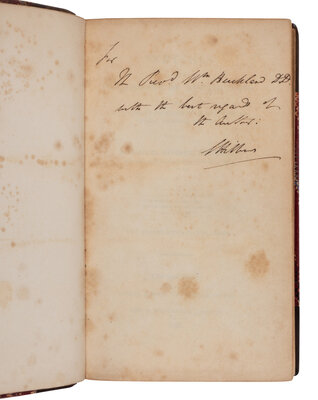 For
The Revd Wm Buckland DD
with the best regards of
the Author: